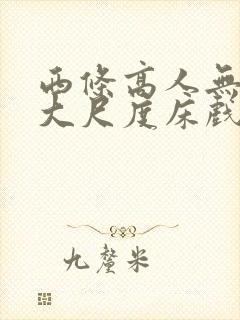 两條高人無
大尺度床戲
九釐米